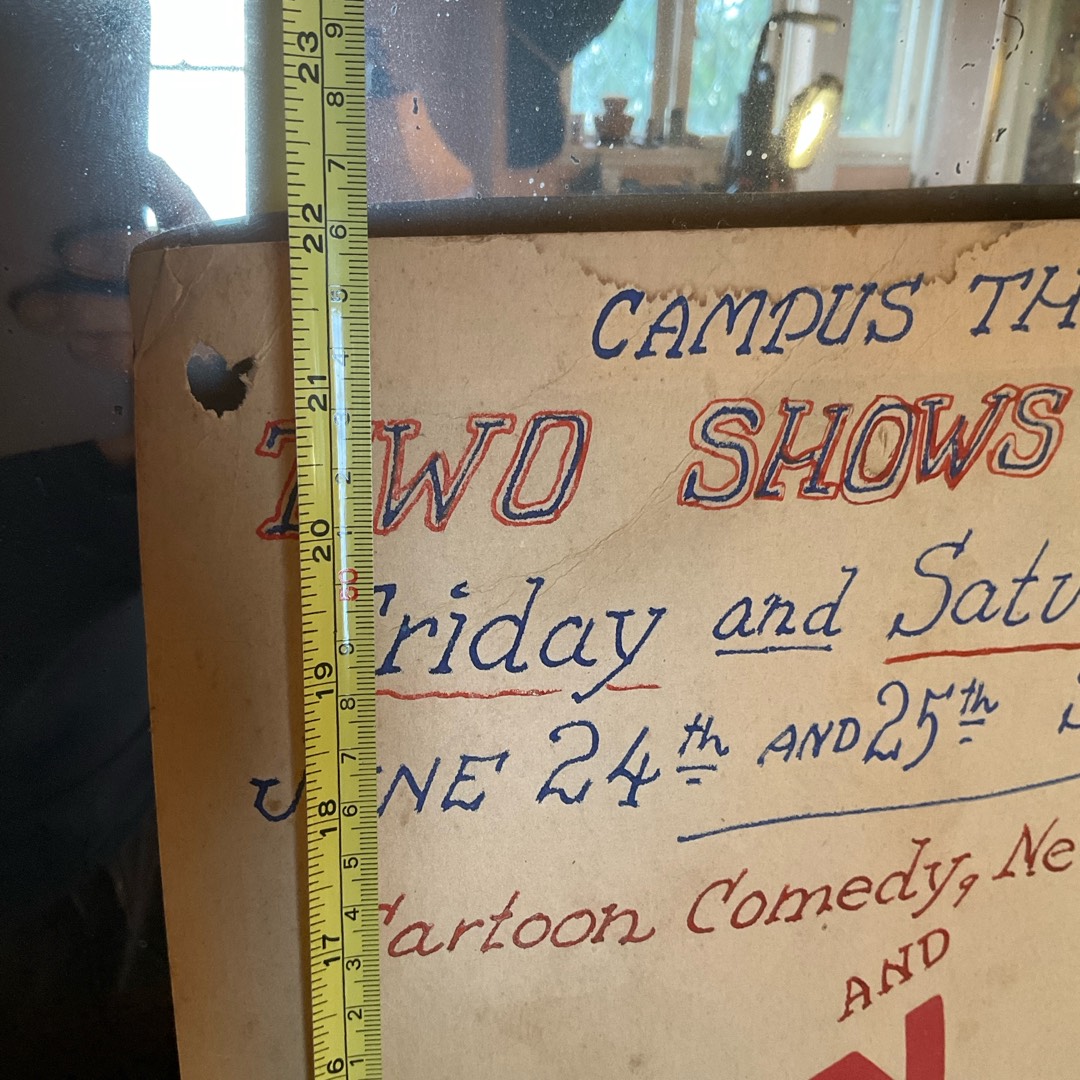 CAMPUS TH
TWO SHOWS
Friday and Satu
JUNE 24th AND 25th
Cartoon Comedy, Ne
AND
23
22
21
20
19
18
17
6
9
8
7
6
5
4
3
2
1
50
9
8
7
6
5
4
3
2
1